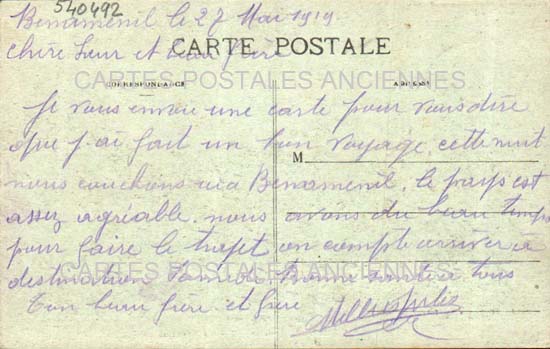 540492
Benamenil le 27 Mai 1919
Chère Sœur et beau frère
CARTE POSTALE
CARTES POSTALES ANCIENNES
CORRESPONDANCE ADRESSE
Je vous envoie une carte pour vous dire
que j'ai fait un bon voyage, cette nuit
M
nous couchons ici a Benamenil, le pays est
assez agréable, nous avons du beau temps
pour faire le trajet on compte arriver à
destination Samedi. Bonne santé à tous
CARTES POSTALES ANCIENNES
Ton beau frère et frère